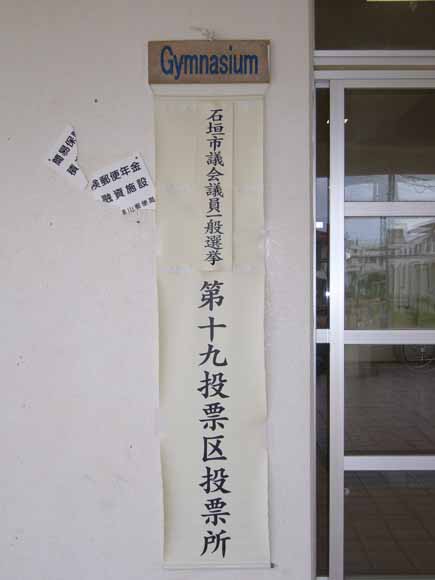 Gymnasium
石垣市議会議員一般選挙
第十九投票区投票所
郵便年金
融資施設